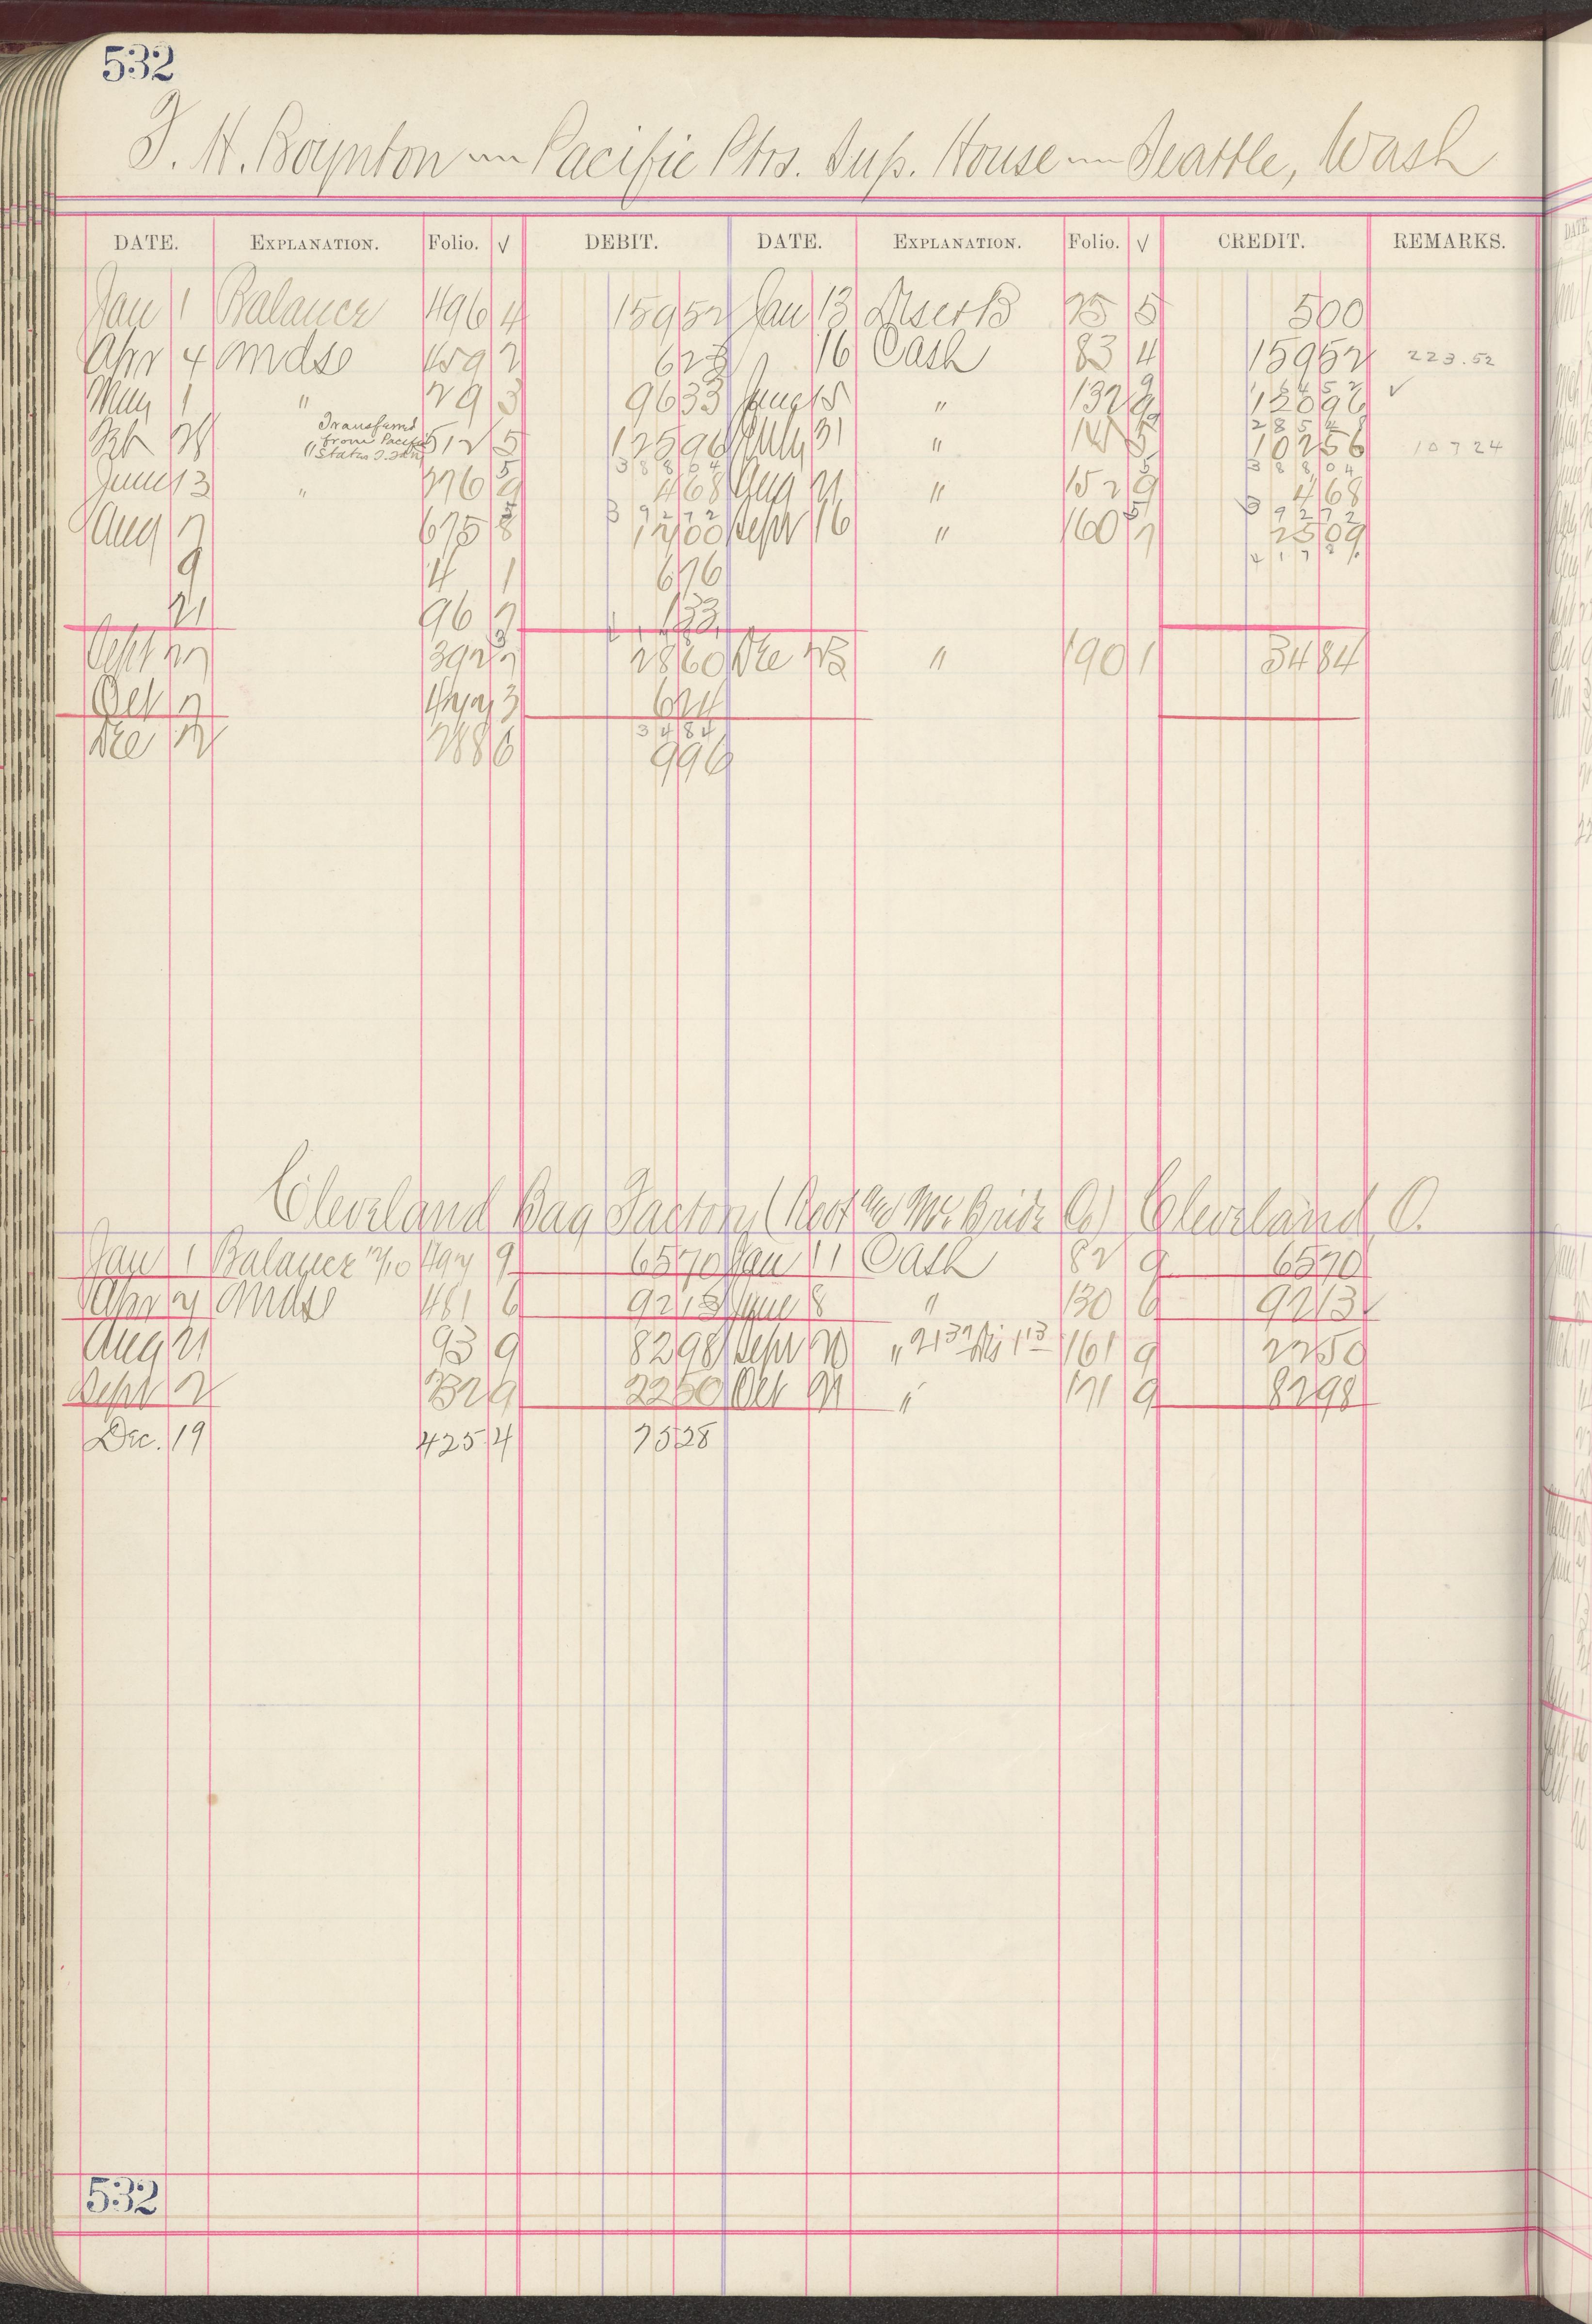 532
F. H. Boynton — Pacific Phrs. Sup. House — Seattle, Wash
DATE. EXPLANATION. Folio. √ DEBIT. DATE. EXPLANATION. Folio. √ CREDIT. REMARKS.
Jan 1 Balance 496 4 15952 Jan 13 25 5 500
Apr 4 Mdse 459 2 623 16 Cash 83 4 15952 223.52
May 1 " 29 3 9633 June 15 " 132 9 12096 √
Feb 28 " Transferred from Pacific States 512 5 12596 July 31 " 10256 107 24
38804 38804
June 13 " 276 9 468 Aug 21 " 152 9 468
39272 39272
Aug 7 675 8 1200 Sept 16 " 160 7 2509
9 4 1 676
21 96 7 133
Sept 27 392 7 2860 Dec 23 " 190 1 3484
Oct 7 3 624
3484
Dec 12 288 6 996
Cleveland Bag Factory (Root and Mc Bride Co) Cleveland O.
Jan 1 Balance 12/10 497 9 6570 Jan 11 Cash 82 9 6570
Apr 21 Mdse 481 6 9213 June 8 " 130 6 9213
Aug 21 93 9 8298 Sept 20 " 21 37 Dis 1 13 161 9 2250
Sept 2 232 9 2250 Oct 21 " 171 9 8298
Dec. 19 425 4 7528
532